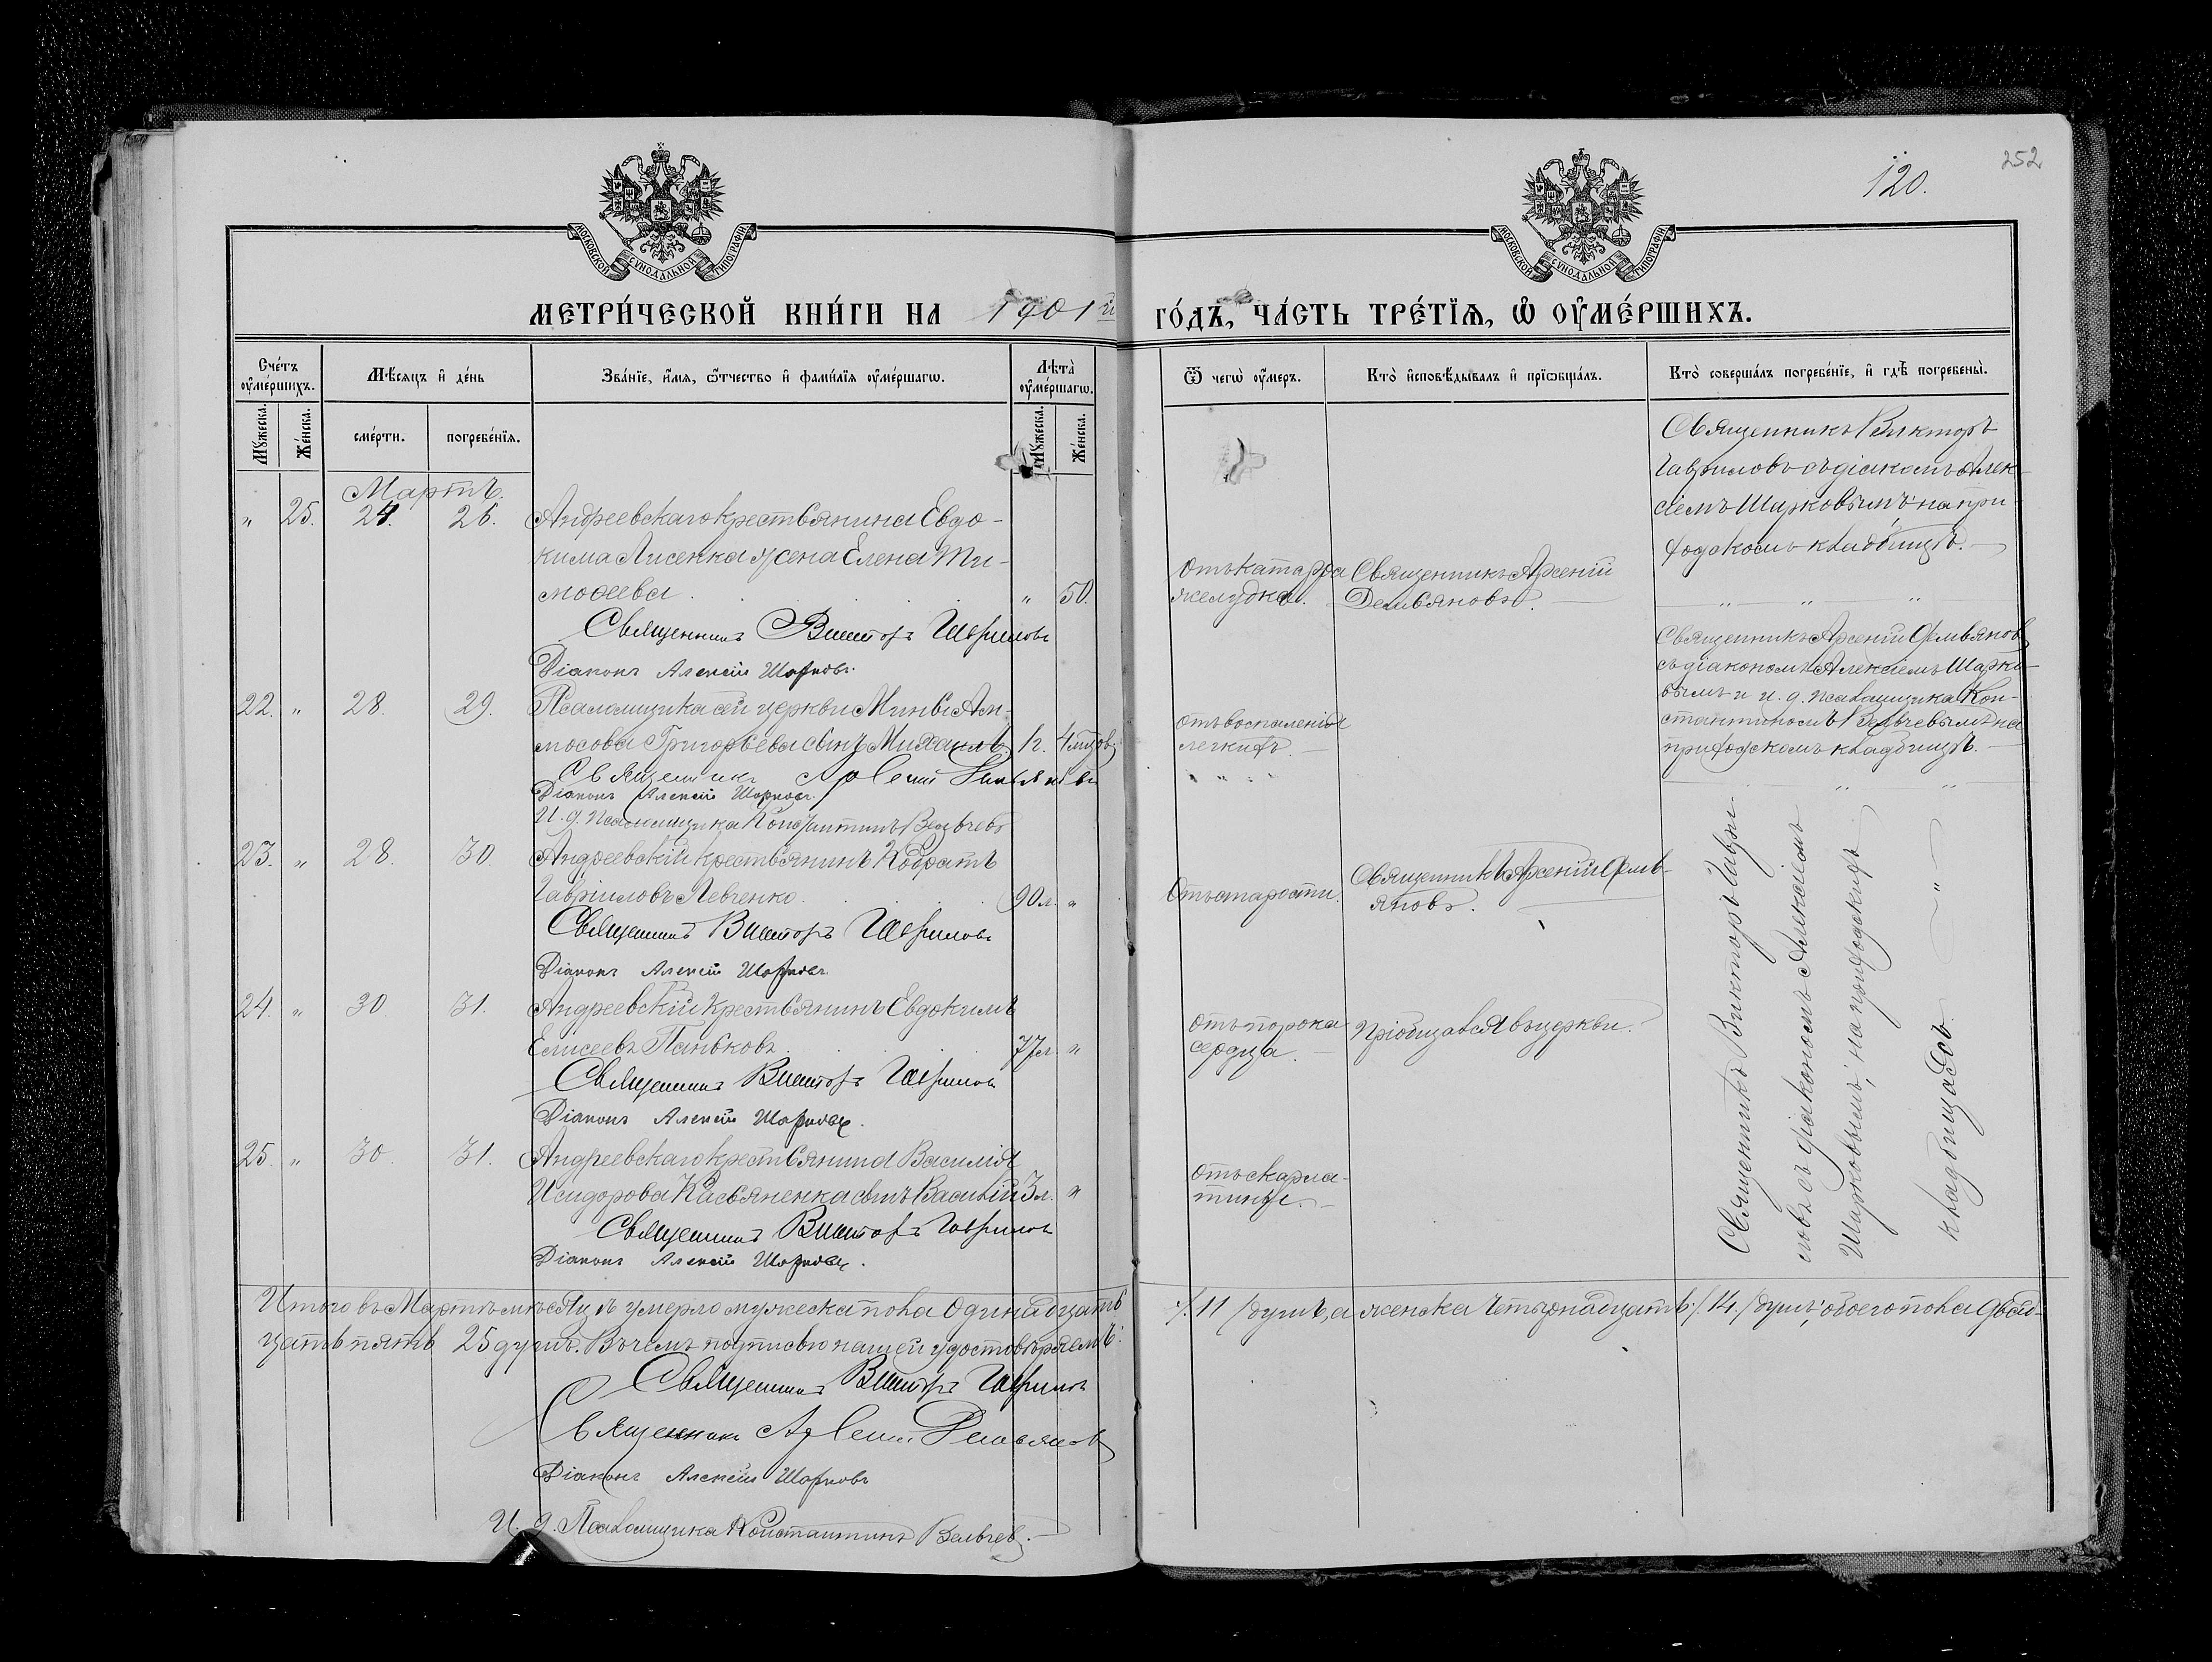 252
120.
МОСКОВСКОЙ СѴНОДАЛЬНОЙ ТИПОГРАФІИ
МОСКОВСКОЙ СѴНОДАЛЬНОЙ ТИПОГРАФІИ
МЕТРИ́ЧЕСКОЙ КНИ́ГИ НА 1901й ГО́ДЪ, ЧА́СТЬ ТРЕ́ТЇѦ, Ѡ҆ ОУ҆МЕ́РШИХЪ.
Сче́тъ оу҆ме́ршихъ.
Мꙋ́жеска.
Же́нска.
Мѣ́сѧцъ и҆ де́нь
сме́рти.
погребе́нїѧ.
Зва́нїе, и҆́мѧ, ѻ҆́тчество и҆ фами́лїѧ оу҆ме́ршагѡ.
Лѣ́та оу҆ме́ршагѡ.
Мꙋ́жеска.
Же́нска.
Ѿ чегѡ̀ оу҆́меръ.
Кто̀ и҆сповѣ́дывалъ и҆ прїѡбща́лъ.
Кто̀ соверша́лъ погребе́нїе, и҆ гдѣ̀ погребены̀.
Мартъ.
" 25. 24. 26. Андреевскаго крестьянина Евдо-
кима Лисенка жена Елена Ти-
моѳеева " 50.
Священникъ Викторъ Гавриловъ
Діаконъ Алексій Шарковъ.
Отъ катарра
желудка.
Священникъ Арсеній
Демьяновъ.
Священникъ Викторъ
Гавриловъ съ діакономъ Алек-
сіемъ Шарковымъ; на при-
ходскомъ кладбищѣ.
" " "
22. " 28. 29. Псаломщика сей церкви Мины Ам-
мосова Григорьева сынъ Михаилъ. 1г. 4 мѣсов.
Священникъ Арсеній Демьяновъ
Діаконъ Алексій Шарковъ.
И. д. псаломщика Константинъ Вельчевъ
отъ воспаленія
легкихъ.
" " "
Священникъ Арсеній Демьяновъ
съ діакономъ Алексіемъ Шарко-
вымъ и и. д. псаломщика Кон-
стантиномъ Вельчевымъ на
приходскомъ кладбищѣ.
" "
23. " 28. 30. Андреевскій крестьянинъ Кодратъ
Гавріиловъ Левченко. 90 л. "
Священникъ Викторъ Гавриловъ
Діаконъ Алексій Шарковъ
Отъ старости.
Священникъ Арсеній Демь-
яновъ.
24. " 30 31. Андреевскій крестьянинъ Евдокимъ
Елисеевъ Паньковъ. 77 л. "
Священникъ Викторъ Гавриловъ
Діаконъ Алексій Шарковъ.
отъ порока
сердца.
Пріобщался въ церкви.
25. " 30. 31. Андреевскаго крестьянина Василія
Исидорова Касьяненка сынъ Василій 3 л. "
Священникъ Викторъ Гавриловъ
Діаконъ Алексій Шарковъ.
отъ скарла-
тины.
Священникъ Викторъ Гаври-
ловъ съ діакономъ Алексіемъ
Шарковымъ; на приходскихъ
кладбищахъ. "
Итого въ Мартѣ мѣсяцѣ умерло мужеска пола одинадцать /. 11 / душъ, а женска четырнадцать /. 14. / душъ; обоего пола двад-
цать пять 25 душъ. Въ чемъ подписью нашей удостовѣряемъ:
Священникъ Викторъ Гавриловъ
Священникъ Арсеній Демьяновъ
Діаконъ Алексій Шарковъ
И. д. Псаломщика Константинъ Вельчевъ.